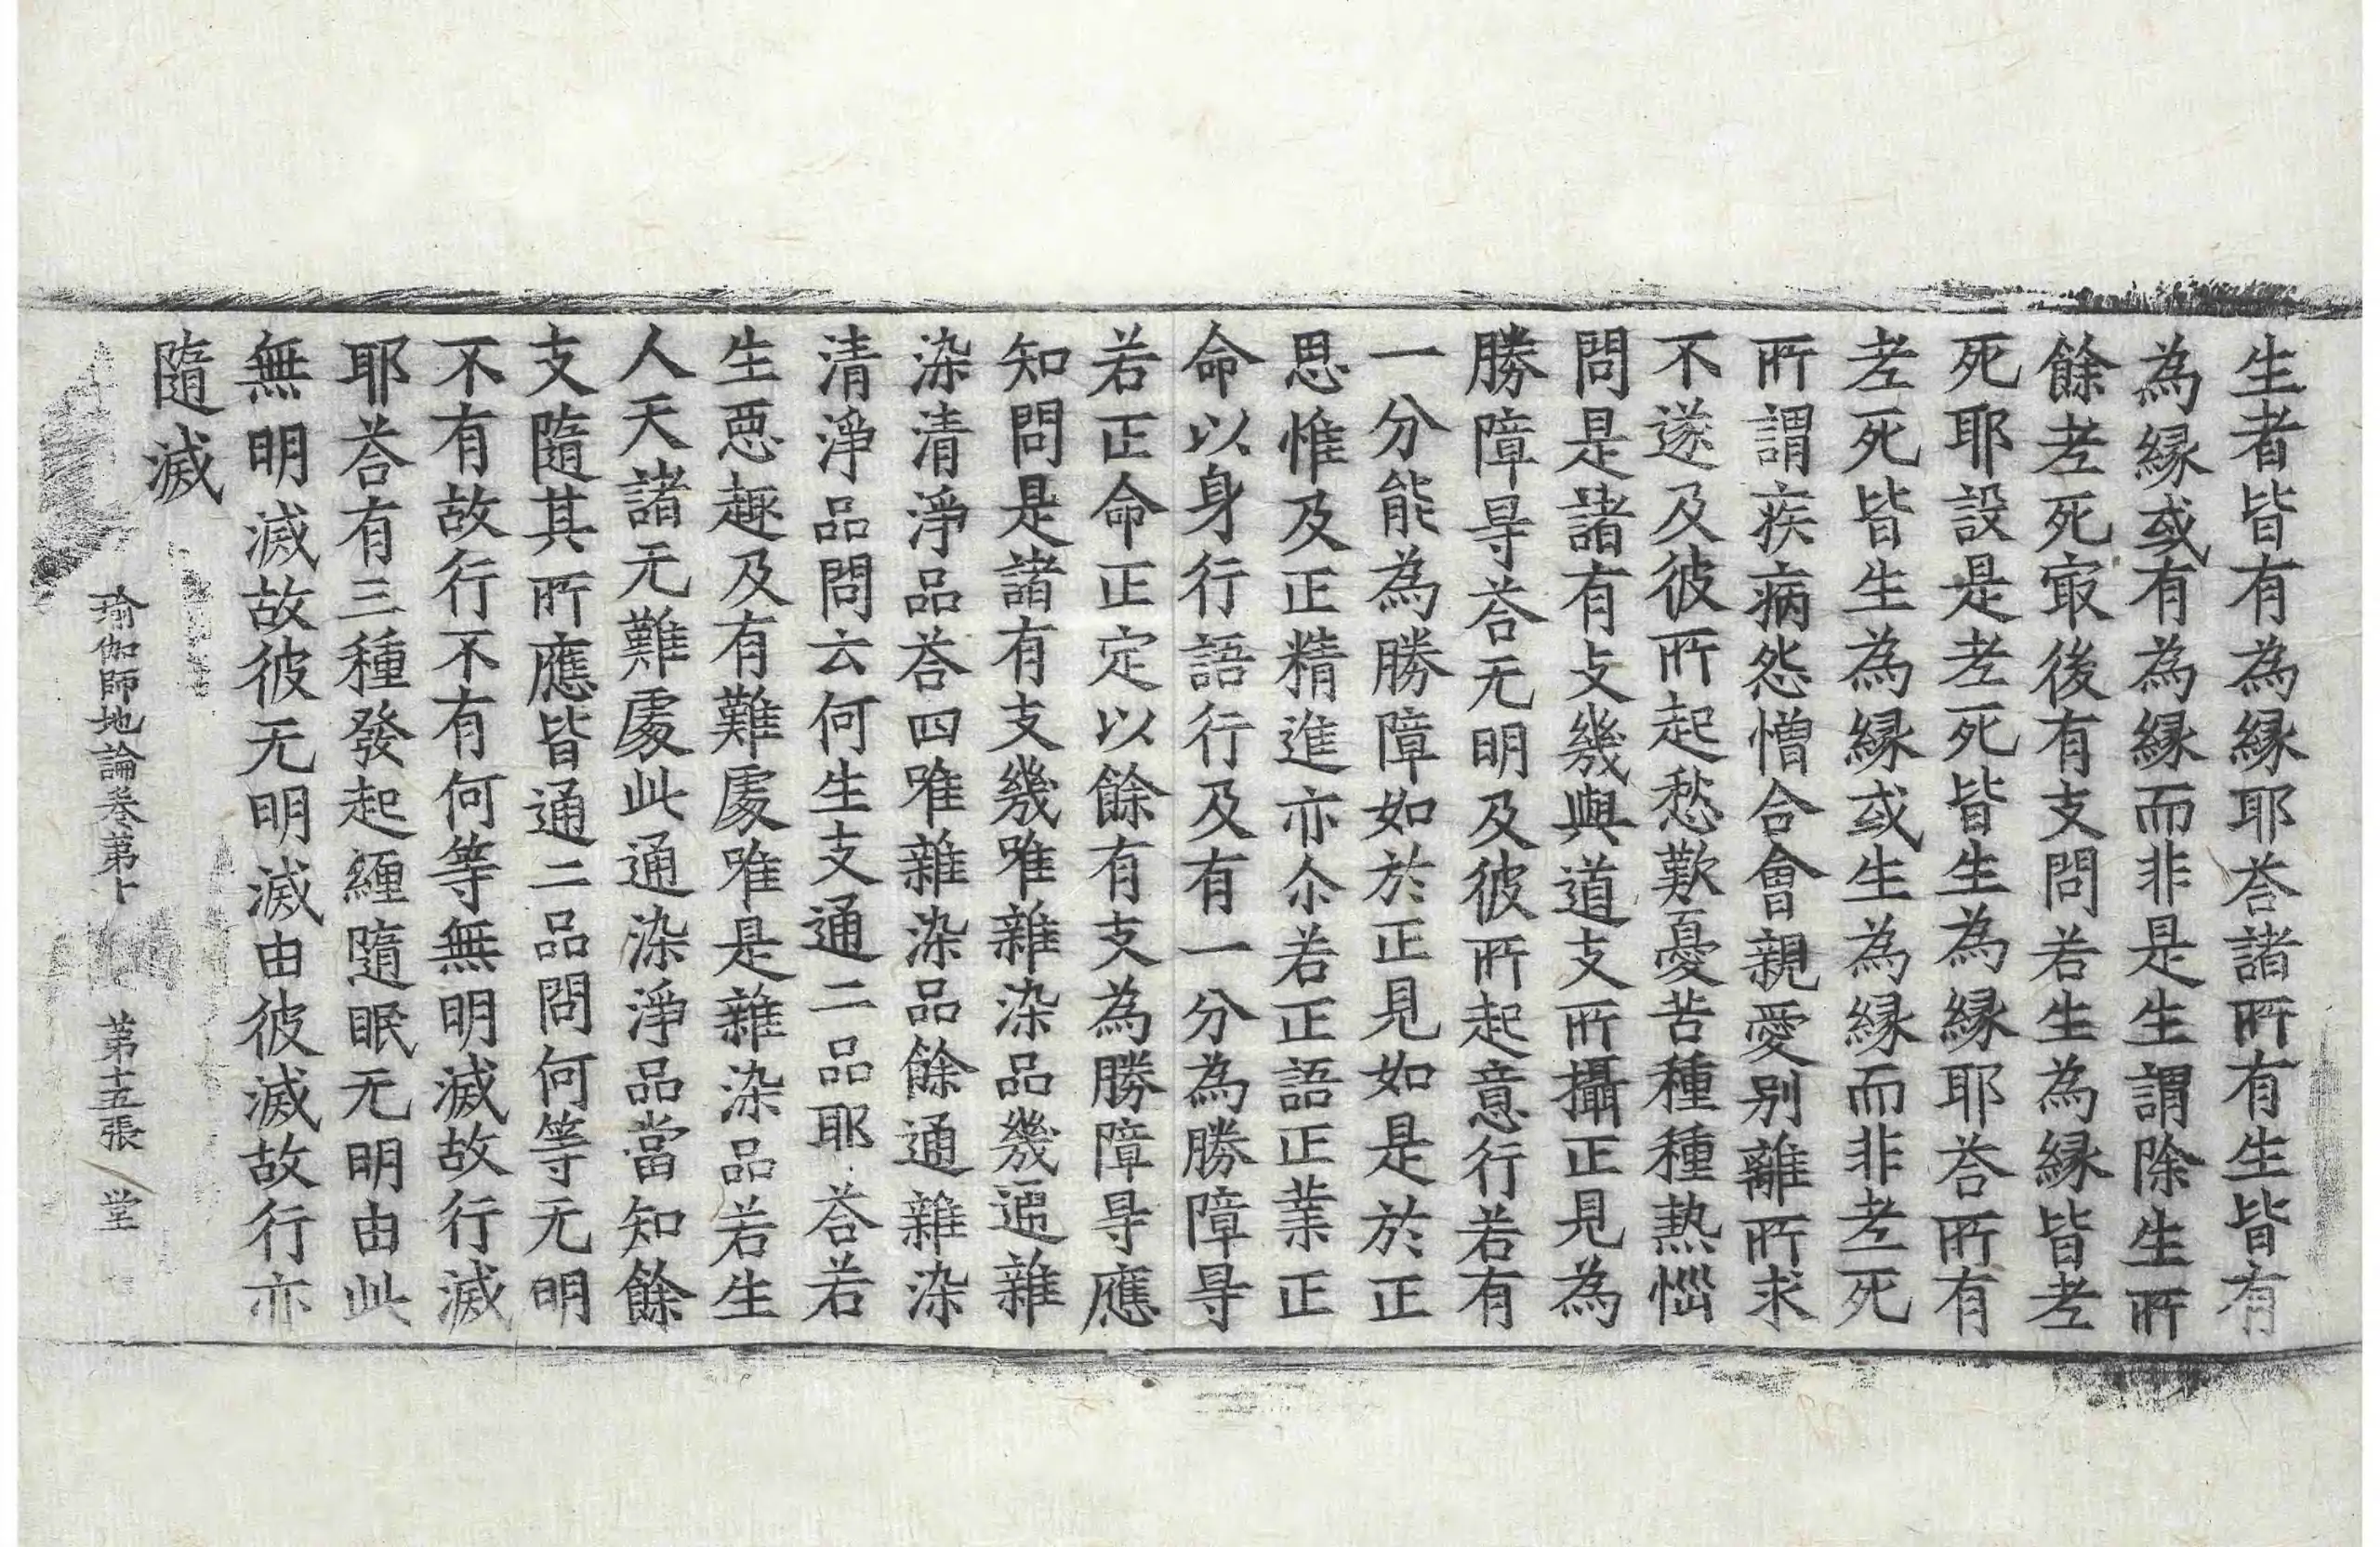 生者皆有為縁耶荅諸所有生皆有
為縁或有為縁而非是生謂除生所
餘老死㝡後有支問若生為縁皆老
死耶設是老死皆生為縁耶荅所有
老死皆生為縁或生為縁而非老死
所謂疾病怨憎合會親愛别離所求
不遂及彼所起愁歎憂苦種種熱惱
問是諸有支幾與道支所攝正見為
勝障㝵荅无明及彼所起意行若有
一分能為勝障如於正見如是於正
思惟及正精進亦尒若正語正業正
命以身行語行及有一分為勝障㝵
若正命正定以餘有支為勝障㝵應
知問是諸有支幾唯雜染品幾通雜
染清淨品荅四唯雜染品餘通雜染
清淨品問云何生支通二品耶荅若
生惡趣及有難處唯是雜染品若生
人天諸无難處此通染淨品當知餘
支隨其所應皆通二品問何等无明
不有故行不有何等無明滅故行滅
耶荅有三種發起纏隨眠无明由此
無明滅故彼无明滅由彼滅故行亦
隨滅
瑜伽師地論卷第十 第十五張 堂